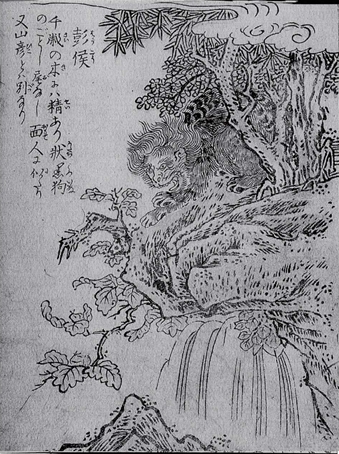 彭侯
千歳の木には精あり状黒狗
のごとし尾なし面人に似たり
又山彦とは別なり